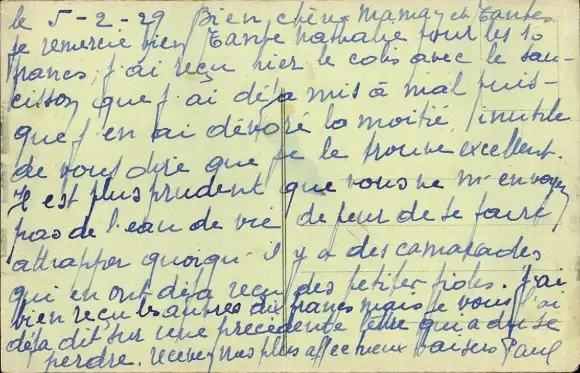 le 5-2-29 Bien chère Maman et Tantes
je remercie bien Tante Nathalie pour les 10
francs, j'ai reçu hier le colis avec le sau-
cisson que j'ai déja mis à mal puis-
que j'en ai dévoré la moitié, inutile
de vous dire que je le trouve excellent.
Il est plus prudent que vous ne m'envoyez
pas de l'eau de vie de peur de se faire
attrapper quoiqu'il y a des camarades
qui en ont déja reçu des petites fioles. J'ai
bien reçu les autres dix francs mais je vous l'ai
déja dit sur une précédente lettre qui a du se
perdre. recevez mes plus affectueux baisers Paul